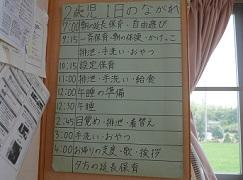 2歳児 1日のながれ
7:00 朝の延長保育・自由遊び
9:15 一斉保育・朝の保健・かけっこ
排泄・手洗い・おやつ
10:15 設定保育
11:00 排泄・手洗い・給食
12:00 午睡の準備
12:30 午睡
2:45 目覚め・排泄・着替え
3:00 手洗い・おやつ
4:00 お帰りの支度・歌・挨拶
夕方の延長保育